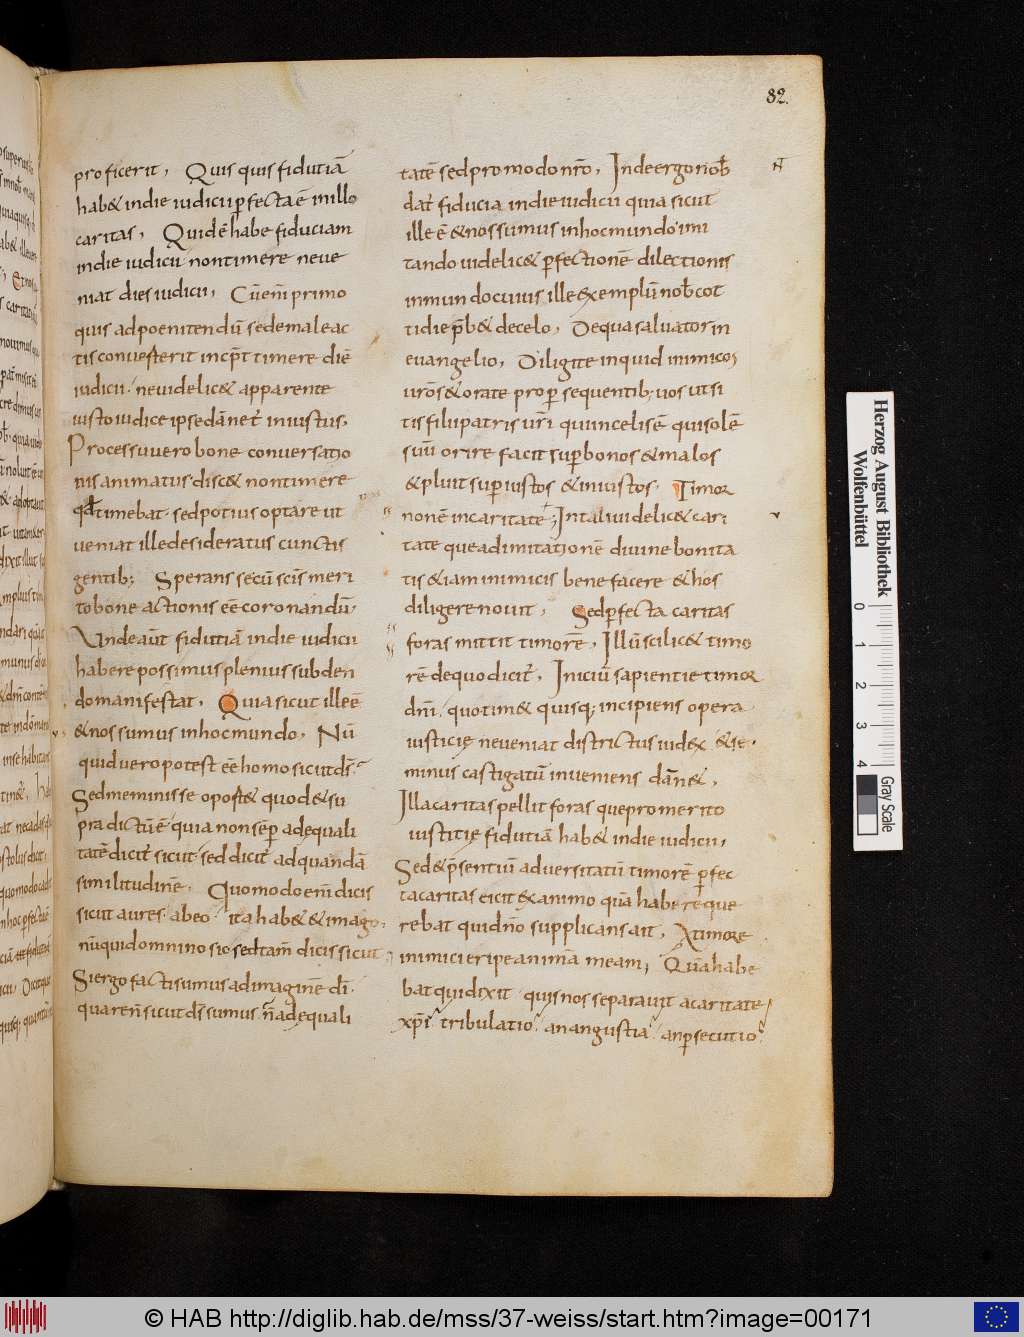 82.
proficerit, Quis quis fidutiā
hab& indie iudicii pfecta ē inillo
caritas, Quidē habe fiduciam
indie iudicii nontimere neue
niat dies iudicii, Cūenī primo
quis adpoenitendū sedemaleac
tis conuesterit incip̄t timere diē
iudicii. neuidelic& apparente
iusto iudice ipsedānet' iniustus.
Processu uero bone conuersatio
nis animatus disc& nontimere
qd timebat. sedpotius optare ut
ueniat ille desideratus cunctis
gentib; Sperans secū scīs meri
tobone actionis eē coronandū.
Unde aūt fidutiā indie iudicii
habere possimus plenius subden
do manifestat. Quia sicut ille ē
& nos sumus inhoc mundo. Nū
quid uero potest eē homo sicut ds̄.
Sed meminisse oport& quod & su
pra dictū ē quia non semp adequali
tatē dicit' sicut sed dicit' adquandā
similitudinē. Quomodo enī dicis
sicut aures. abeo. ita hab& & imago.
nūquid omnino sic sed tam̄ dicis sicut
Si ergo facti sumus ad imaginē dī.
quare n̄ sicut ds̄ sumus. n̄ adequali
tatē sed pro modo nr̄o. Inde ergo nob̄
dat' fiducia indie iudicii quia sicut
ille ē & nos sumus inhoc mundo imi
tando uidelic& pfectionē dilectionis
inmundo cuius ille exemplū nob̄ cot
tidie p̄b& de celo. De qua saluator in
euangelio, Diligite inquid inimicos
urōs & orate pro psequentib; uos ut si
tis filii patris ur̄i qui incelis ē qui solē
suū orire facit sup bonos & malos
& pluit sup iustos & iniustos. Timor
non ē incaritate; Intali uidelic& cari
tate que adimitationē diuine bonita
tis & iam inimicis bene facere & hos
diligere nouit, Sed pfecta caritas
foras mittit timorē, Illū scilic& timo
rē de quo dicit'. Iniciū sapientie timor
dn̄i. quo tim& quisq; incipiens opera
iusticię ne ueniat districtus iudex & se
minus castigatū inueniens dān&,
Illa caritas pellit foras que pro merito
iustitię fidutiā hab& indie iudicii,
Sed & p̄sentiū aduersitatū timorē pfec
ta caritas eicit ex animo quā habere que
rebat quidn̄o supplicans ait, A timore
inimici eripe anima meam; Quā habe
bat qui dixit quis nos separauit a caritate
xpī tribulatio. an angustia. an psecutio
Herzog August Bibliothek
Wolfenbüttel
0 1 2 3 4
Gray Scale
© HAB http://diglib.hab.de/mss/37-weiss/start.htm?image=00171